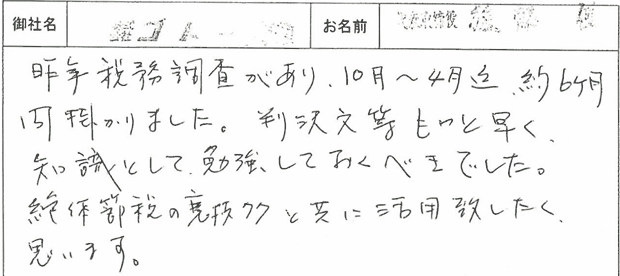 御社名 お名前
昨年税務調査があり、10月〜4月迄、約6ヶ月
間掛かりました。判決文等もっと早く、
知識として、勉強しておくべきでした。
絶体節税の裏技77と共に活用致したく、
思います。